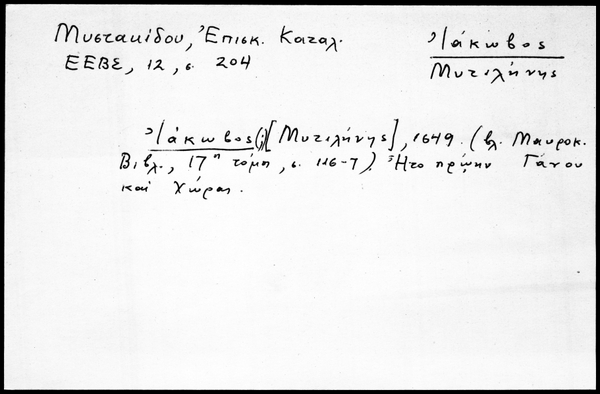 Μυστακίδου, Ἐπισκ. Καταλ.
ΕΕΒΣ, 12, σ. 204
Ἰάκωβος
Μυτιλήνης
Ἰάκωβος(;)[Μυτιλήνης], 1649. (βλ. Μαυροκ.
Βιβλ., 17η τόμη, σ. 116-7). Ἦτο πρώην Γάνου
καὶ Χώρας.